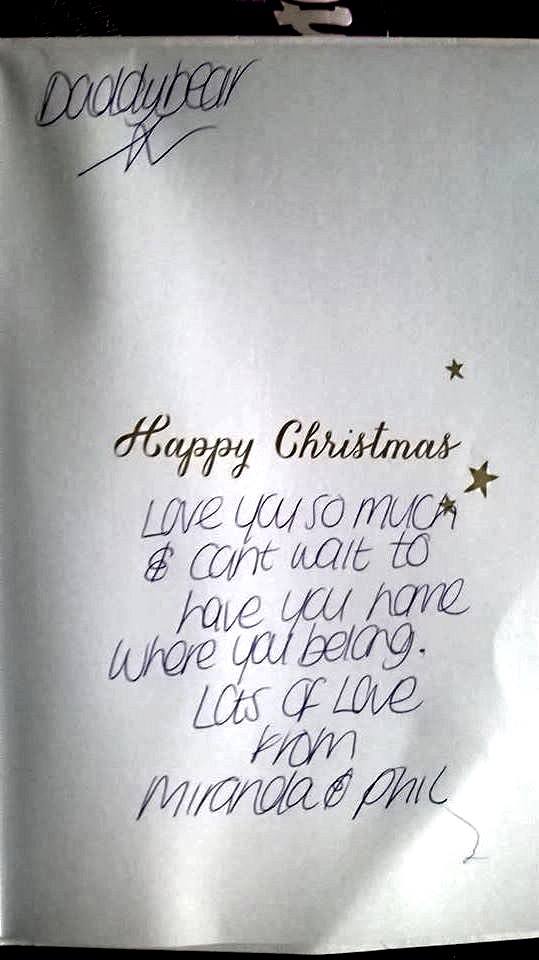 Daddybear
Happy Christmas
Love you so much
& cant wait to
have you home
where you belong.
Lots of Love
From
Miranda & Phil